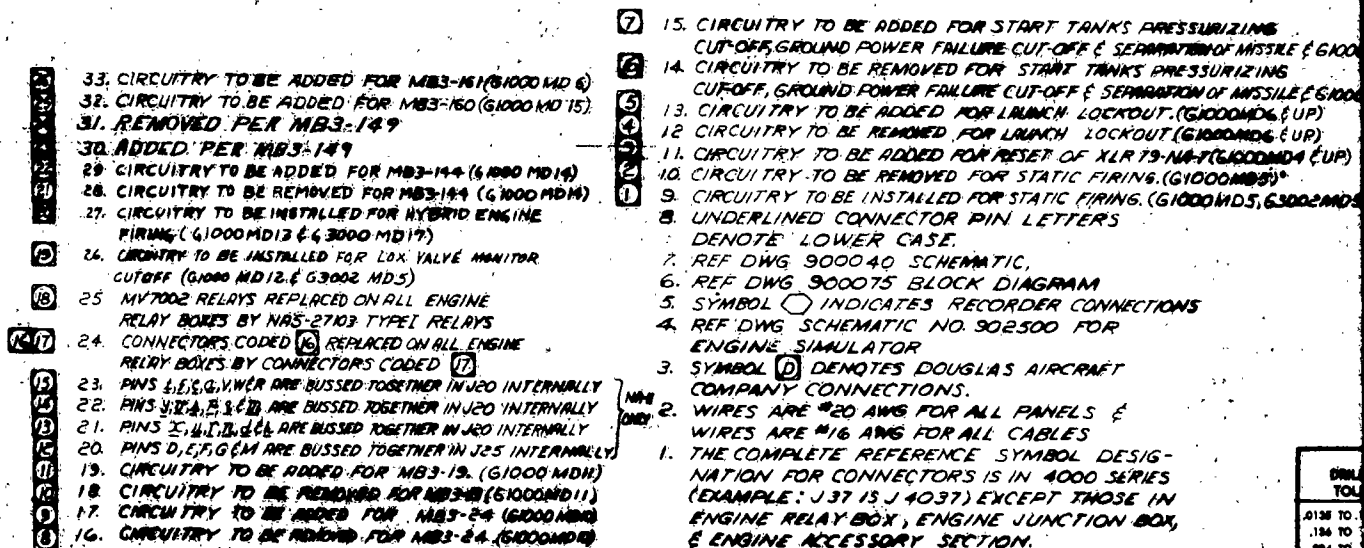 33. CIRCUITRY TO BE ADDED FOR MB3-161 (G1000 MD 6)
32. CIRCUITRY TO BE ADDED FOR MB3-160 (G1000 MD 15)
31. REMOVED PER MB3-149
30. ADDED PER MB3-149
29. CIRCUITRY TO BE ADDED FOR MB3-144 (G1000 MD 14)
21 28. CIRCUITRY TO BE REMOVED FOR MB3-144 (G1000 MD 14)
27. CIRCUITRY TO BE INSTALLED FOR HYBRID ENGINE
FIRING (G1000 MD13 & G3000 MD 17)
19 26. CIRCUITRY TO BE INSTALLED FOR LOX VALVE MONITOR
CUTOFF (G1000 MD 12 & G3002 MD5)
18 25 MV7002 RELAYS REPLACED ON ALL ENGINE
RELAY BOXES BY NAS-27103 TYPE I RELAYS
16 17 24. CONNECTORS CODED 16 REPLACED ON ALL ENGINE
RELAY BOXES BY CONNECTORS CODED 17
15 23. PINS ARE BUSSED TOGETHER IN J20 INTERNALLY
14 22. PINS ARE BUSSED TOGETHER IN J20 INTERNALLY
13 21. PINS ARE BUSSED TOGETHER IN J20 INTERNALLY
12 20. PINS D,E,F,G & M ARE BUSSED TOGETHER IN J25 INTERNALLY
ONLY
11 19. CIRCUITRY TO BE ADDED FOR MB3-19. (G1000 MD11)
10 18. CIRCUITRY TO BE REMOVED FOR (G1000MD11)
9 17. CIRCUITRY TO BE ADDED FOR MB3-24 (G1000
8 16. CIRCUITRY TO BE REMOVED FOR MB3-24 (G1000
7 15. CIRCUITRY TO BE ADDED FOR START TANKS PRESSURIZING
CUT-OFF, GROUND POWER FAILURE CUT-OFF & SEPARATION OF MISSILE & G1000
6 14. CIRCUITRY TO BE REMOVED FOR START TANKS PRESSURIZING
CUT-OFF, GROUND POWER FAILURE CUT-OFF & SEPARATION OF MISSILE & G1000
5 13. CIRCUITRY TO BE ADDED FOR LAUNCH LOCKOUT. (G1000MD6 & UP)
4 12 CIRCUITRY TO BE REMOVED FOR LAUNCH LOCKOUT (G1000MD6 & UP)
3 11. CIRCUITRY TO BE ADDED FOR RESET OF XLR79-NA-7 (G1000MD4 & UP)
2 10. CIRCUITRY TO BE REMOVED FOR STATIC FIRING. (G1000MD5)
1 9. CIRCUITRY TO BE INSTALLED FOR STATIC FIRING. (G1000MD5, G3002MD5
8. UNDERLINED CONNECTOR PIN LETTERS
DENOTE LOWER CASE.
7. REF DWG 900040 SCHEMATIC,
6. REF DWG 900075 BLOCK DIAGRAM
5. SYMBOL INDICATES RECORDER CONNECTIONS
4. REF DWG SCHEMATIC NO. 902500 FOR
ENGINE SIMULATOR
3. SYMBOL D DENOTES DOUGLAS AIRCRAFT
COMPANY CONNECTIONS.
2. WIRES ARE #20 AWG FOR ALL PANELS &
WIRES ARE #16 AWG FOR ALL CABLES
1. THE COMPLETE REFERENCE SYMBOL DESIG-
NATION FOR CONNECTORS IS IN 4000 SERIES
(EXAMPLE: J37 IS J4037) EXCEPT THOSE IN
ENGINE RELAY BOX, ENGINE JUNCTION BOX,
& ENGINE ACCESSORY SECTION.
TOL
.0135 TO
.134 TO